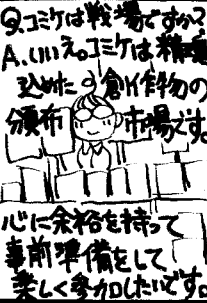 Q.コミケは戦場ですか?
A.いいえ。コミケは精魂
込めた創作物の
頒布市場です。
心に余裕を持って
事前準備をして
楽しく参加したいです。